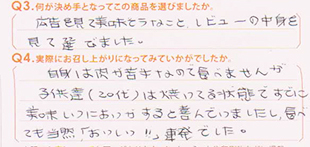 Q3.何が決め手となってこの商品を選びましたか。
広告を見て美味そうなこと、レビューの中身を
見て選びました。
Q4.実際にお召し上がりになってみていかがでしたか。
自身は肉が苦手なので食べませんが
子供達(20代)は焼いてる状態ですでに
美味しいにおいがすると喜んでいましたし、食べ
ても当然「おいしい!!」連発でした。